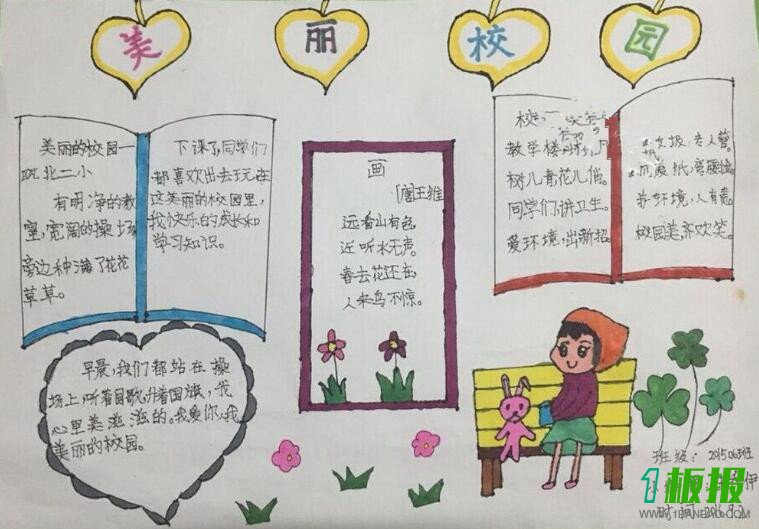 美丽校园
美丽的校园一
北二小
有明净的教
室,宽阔的操场
旁边种满了花花
草草。
下课了,同学们
都喜欢出去玩在
这美丽的校园里,
我快乐的成长和
学习知识。
画
[唐]王维
远看山有色,
近听水无声。
春去花还在,
人来鸟不惊。
校
教学楼
树儿青,花儿俏。
同学们,讲卫生。
爱环境,出新招
专人管。
弯腰捡
环境,人有责。
校园美,齐欢笑。
早晨,我们都站在操
场上,听着国歌升着国旗,我
心里美滋滋的。我爱你,我
美丽的校园。
班级:201506班
1板报
WWW.1BANBAO.COM